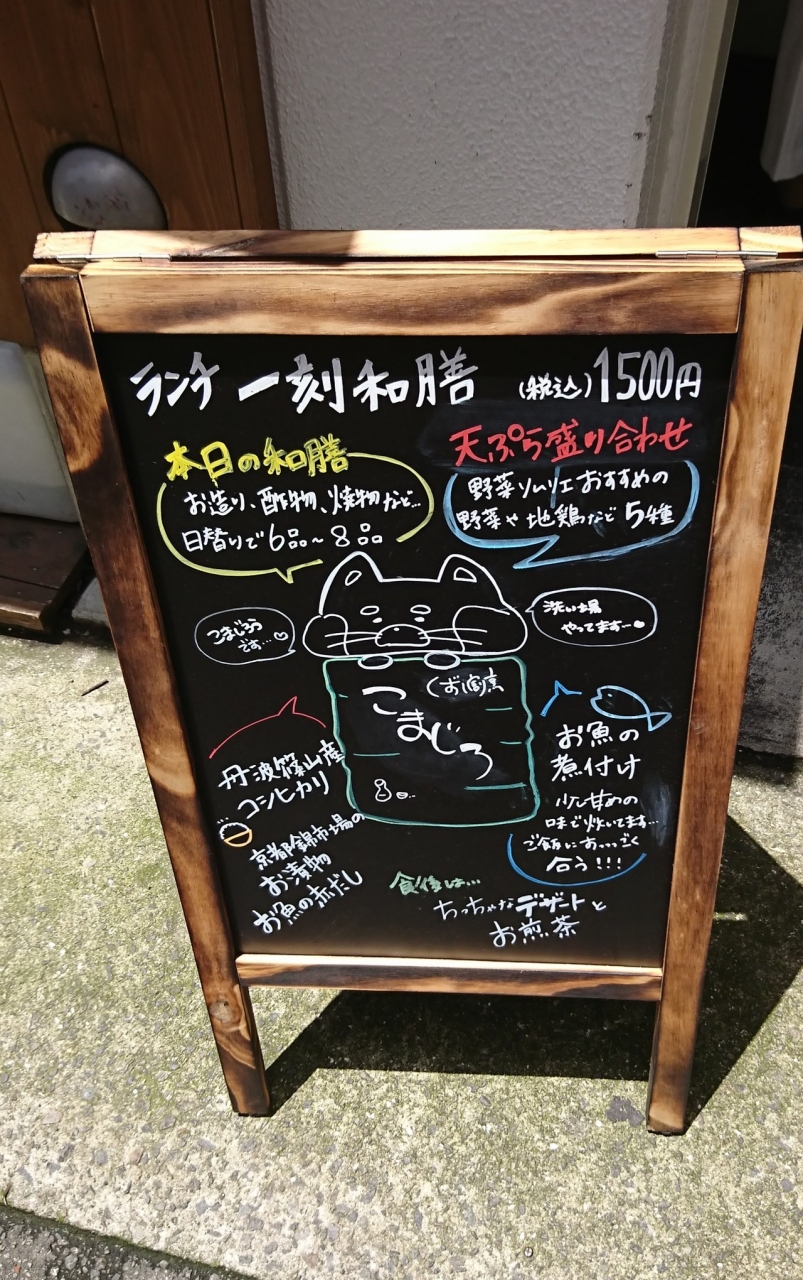 ランチ 一刻和膳 (税込)1500円
本日の和膳
お造り、酢物、焼物など…
日替りで6品~8品
天ぷら盛り合わせ
野菜ソムリエおすすめの
野菜や地鶏など5種
こまじろう
です…
洗い場
やってます…
こまじろ
丹波篠山産
コシヒカリ
京都錦市場の
お漬物
お魚の赤だし
お魚の
煮付け
少し甘めの
味で炊いてます…
ご飯にすっ…ごく
合う!!!
食後は…
ちっちゃなデザートと
お煎茶